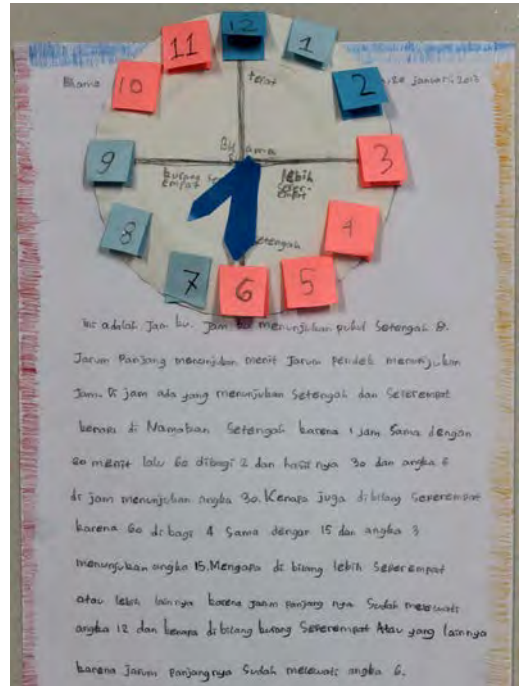 12
11
1
10
2
Bhama
januari 2013
tepat
9
3
By
ama
kurang se
empat
lebih
seper-
empat
8
4
setengah
7
6
5
ini adalah Jam ku. Jam ku menunjukan pukul Setengah 8.
Jarum Panjang menunjukan menit Jarum Pendek menunjukin
Jam. Di jam ada yang menunjukan Setengah dan Seperempat
kenapa di Namakan Setengah karena 1 jam Sama dengan
60 menit lalu 60 dibagi 2 dan hasil nya 30 dan angka 6
di jam menunjukan angka 30. Kenapa juga dibilang Seperempat
karena 60 di bagi 4 Sama dengan 15 dan angka 3
menunjukan angka 15. Mengapa di bilang lebih Seperempat
atau lebih lainnya karena jarum panjang nya Sudah melewati
angka 12 dan kenapa dibilang kurang Seperempat Atau yang lainnya
karena jarum panjangnya Sudah melewati angka 6.